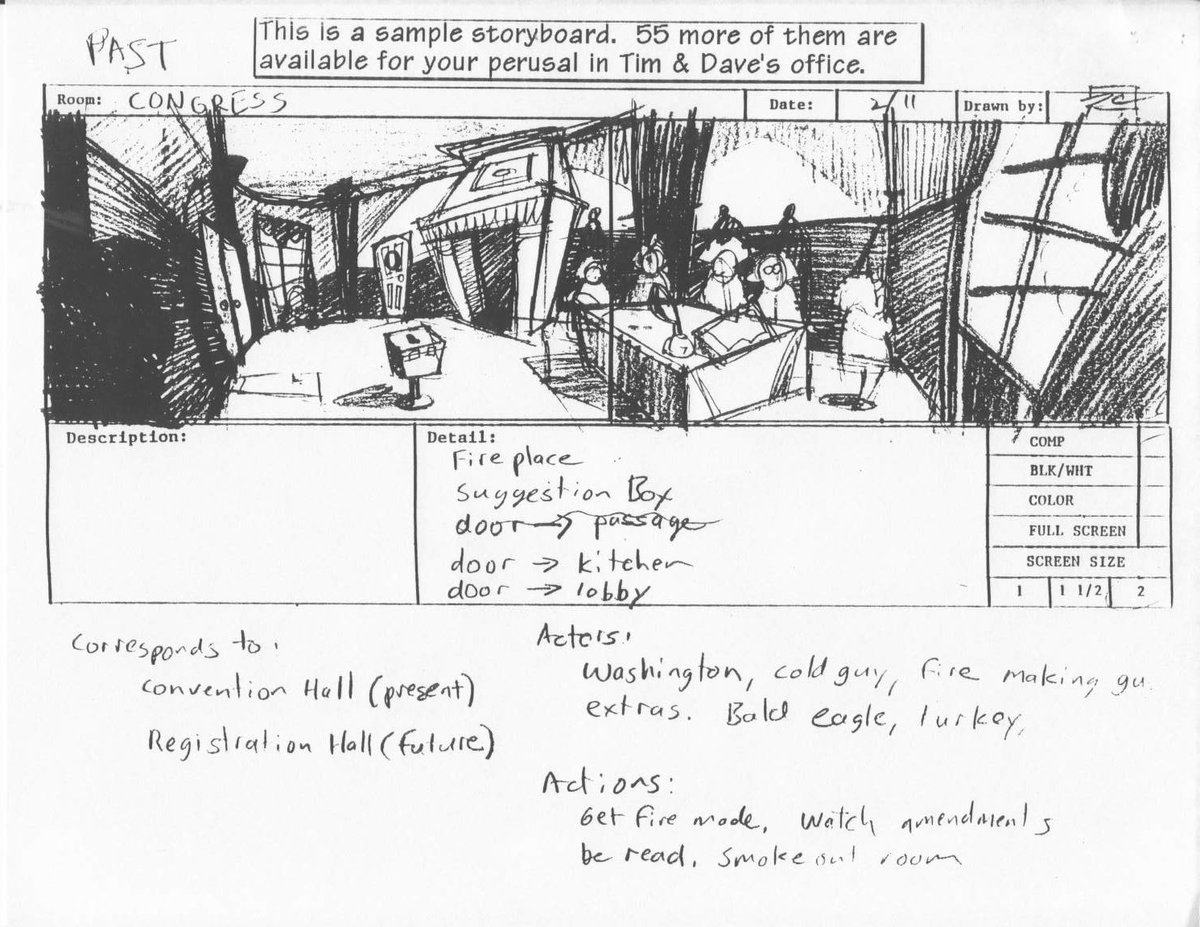 PAST
This is a sample storyboard. 55 more of them are
available for your perusal in Tim & Dave's office.
Room: CONGRESS Date: 2/11 Drawn by:
Description:
Detail:
Fire place
Suggestion Box
door → passage
door → kitchen
door → lobby
COMP
BLK/WHT
COLOR
FULL SCREEN
SCREEN SIZE
1 1 1/2 2
Corresponds to:
Convention Hall (present)
Registration Hall (future)
Actors:
Washington, cold guy, Fire making gu
extras. Bald eagle, turkey,
Actions:
Get Fire made, Watch amendments
be read, Smoke out room